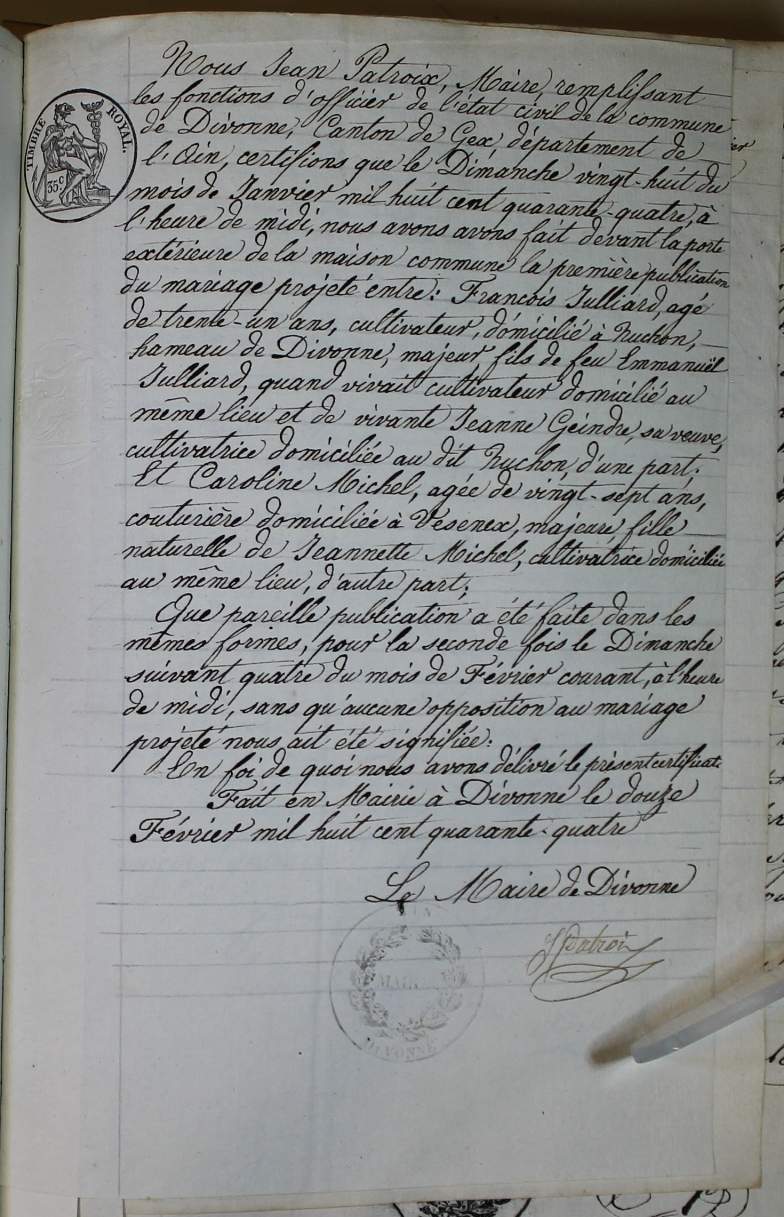 TIMBRE ROYAL.
35c
Nous Jean Patroix, Maire, remplissant
les fonctions d'officier de l'état civil de la commune
de Divonne, Canton de Gex, département de
l'Ain, certifions que le Dimanche vingt-huit du
mois de Janvier mil huit cent quarante-quatre, à
l'heure de midi, nous avons avons fait devant la porte
extérieure de la maison commune la première publication
du mariage projeté entre: François Julliard, agé
de trente-un ans, cultivateur, domicilié à Ruchon,
hameau de Divonne, majeur fils de feu Emmanuël
Julliard, quand vivait cultivateur domicilié au
même lieu et de vivante Jeanne Geindre, sa veuve,
cultivatrice domiciliée au dit Ruchon, d'une part;
Et Caroline Michel, agée de vingt-sept ans,
couturière domiciliée à Vesenex, majeure fille
naturelle de Jeannette Michel, cultivatrice domiciliée
au même lieu, d'autre part;
Que pareille publication a été faite dans les
mêmes formes, pour la seconde fois le Dimanche
suivant quatre du mois de Février courant, à l'heure
de midi, sans qu'aucune opposition au mariage
projeté nous ait été signifiée:
En foi de quoi nous avons délivré le présent certificat
Fait en Mairie à Divonne le douze
Février mil huit cent quarante-quatre
Le Maire de Divonne
J Patroix
DIVONNE